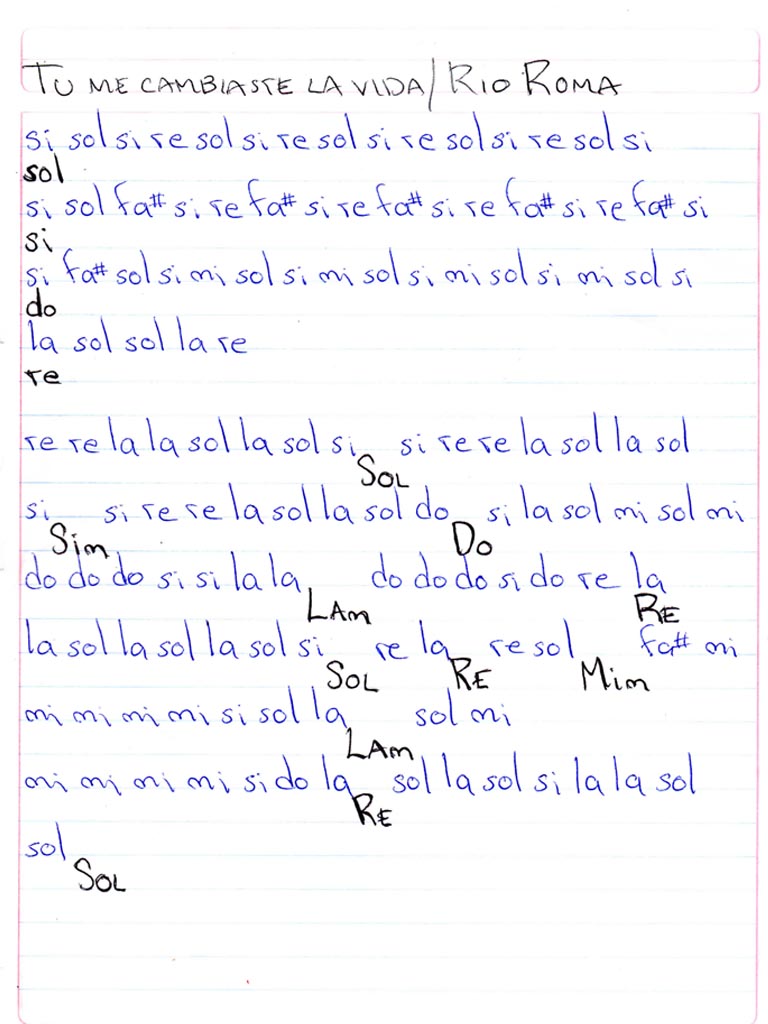 TU ME CAMBIASTE LA VIDA/RIO ROMA
si sol si re sol si re sol si re sol si re sol si
sol
si sol fa# si re fa# si re fa# si re fa# si re fa# si
si
si fa# sol si mi sol si mi sol si mi sol si mi sol si
do
la sol sol la re
re
re re la la sol la sol si si re re la sol la sol
SOL
si si re re la sol la sol do si la sol mi sol mi
Sim DO
do do do si si la la do do do si do re la
LAm RE
la sol la sol la sol si re la re sol fa# mi
SOL RE Mim
mi mi mi mi si sol la sol mi
LAm
mi mi mi mi si do la sol la sol si la la sol
RE
sol
SOL